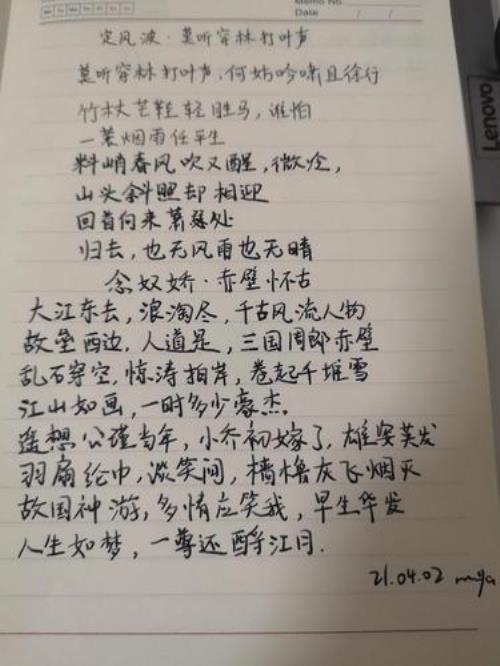 Memo No.
Mo Tu We Th Fr Sa Su
Date / /
定风波·莫听穿林打叶声
莫听穿林打叶声,何妨吟啸且徐行
竹杖芒鞋轻胜马,谁怕
一蓑烟雨任平生
料峭春风吹又醒,微冷,
山头斜照却相迎
回首向来萧瑟处
归去,也无风雨也无晴
念奴娇·赤壁怀古
大江东去,浪淘尽,千古风流人物
故垒西边,人道是,三国周郎赤壁
乱石穿空,惊涛拍岸,卷起千堆雪
江山如画,一时多少豪杰。
遥想公瑾当年,小乔初嫁了,雄姿英发
羽扇纶巾,谈笑间,樯橹灰飞烟灭
故国神游,多情应笑我,早生华发
人生如梦,一尊还酹江月.
21.04.02
Lenovo